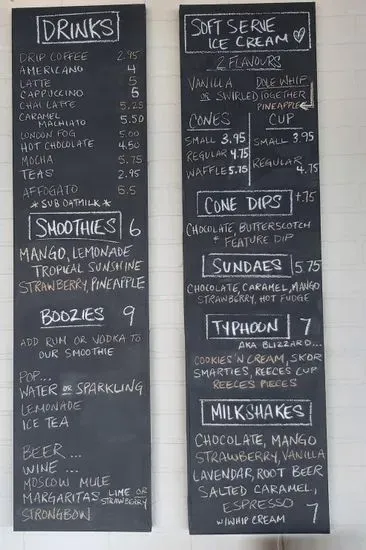 DRINKS
DRIP COFFEE 2.95
AMERICANO 4
LATTE 5
CAPPUCCINO 5
CHAI LATTE 5.25
CARAMEL
MACHIATO 5.50
LONDON FOG 5.00
HOT CHOCOLATE 4.50
MOCHA 5.75
TEAS 2.95
AFFOGATO 5.5
* SUB OATMILK *
SMOOTHIES 6
MANGO, LEMONADE
TROPICAL SUNSHINE
STRAWBERRY, PINEAPPLE
BOOZIES 9
ADD RUM OR VODKA TO
OUR SMOOTHIE
POP...
WATER OR SPARKLING
LEMONADE
ICE TEA
BEER...
WINE...
MOSCOW MULE
MARGARITAS LIME OR STRAWBERRY
STRONGBOW
SOFT SERVE
ICE CREAM ♡
2 FLAVOURS
VANILLA DOLE WHIP
OR SWIRLED TOGETHER
PINEAPPLE
CONES
SMALL 3.95
REGULAR 4.75
WAFFLE 5.75
CUP
SMALL 3.95
REGULAR
4.75
CONE DIPS +.75
CHOCOLATE, BUTTERSCOTCH
+ FEATURE DIP
SUNDAES 5.75
CHOCOLATE, CARAMEL, MANGO
STRAWBERRY, HOT FUDGE
TYPHOON 7
AKA BLIZZARD...
COOKIES 'N CREAM, SKOR
SMARTIES, REECES CUP
REECES PIECES
MILKSHAKES
CHOCOLATE, MANGO
STRAWBERRY, VANILLA
LAVENDAR, ROOT BEER
SALTED CARAMEL,
ESPRESSO
W/WHIP CREAM 7